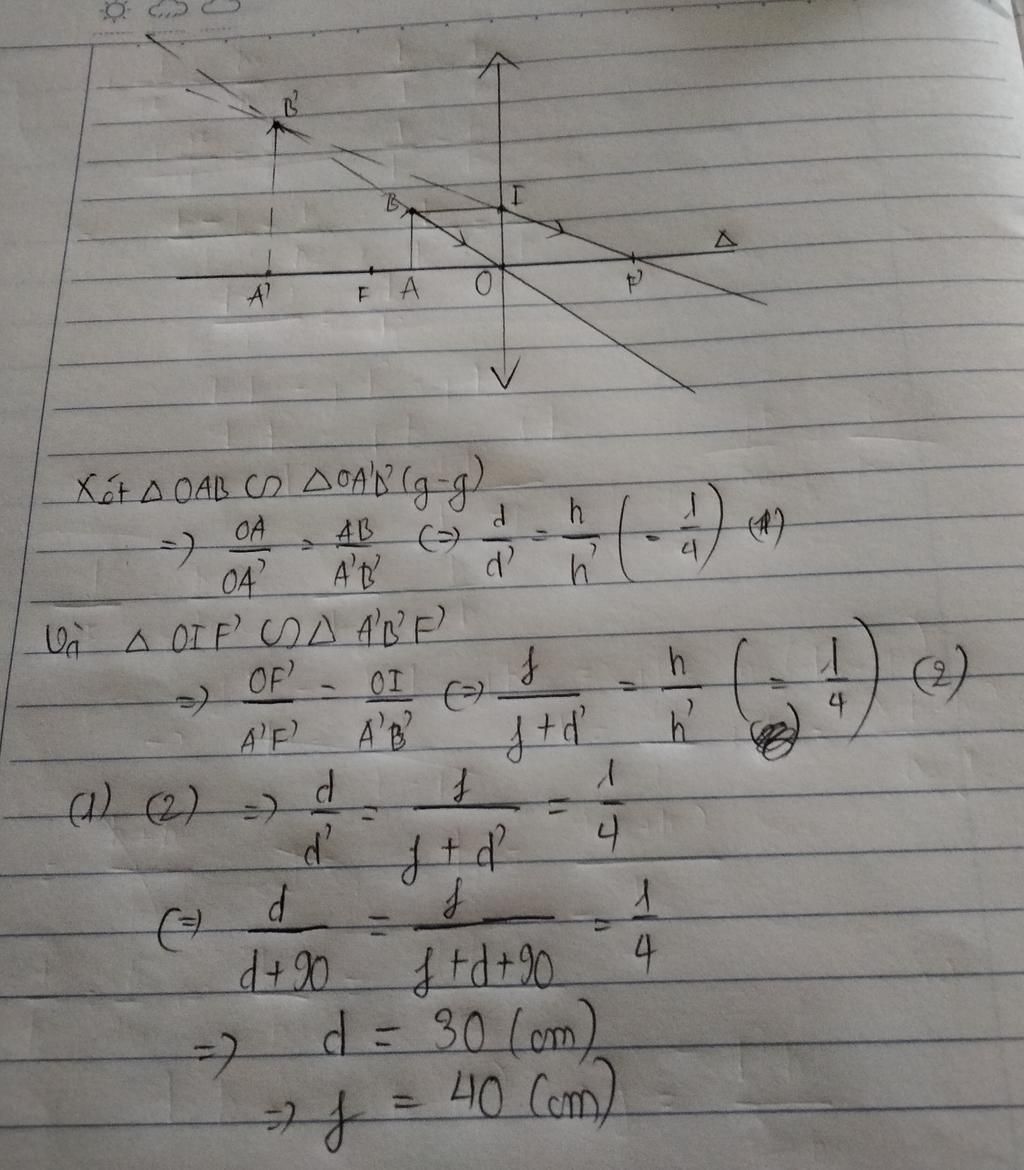 B'
B I
Δ
A' F A O F'
Xét Δ OAB ∽ Δ OA'B' (g-g)
=> OA/OA' = AB/A'B' <=> d/d' = h/h' (= 1/4) (1)
Và Δ OIF' ∽ Δ A'B'F'
=> OF'/A'F' = OI/A'B' <=> f/(f+d') = h/h' (= 1/4) (2)
(1) (2) => d/d' = f/(f+d') = 1/4
<=> d/(d+90) = f/(f+d+90) = 1/4
=> d = 30 (cm)
=> f = 40 (cm)